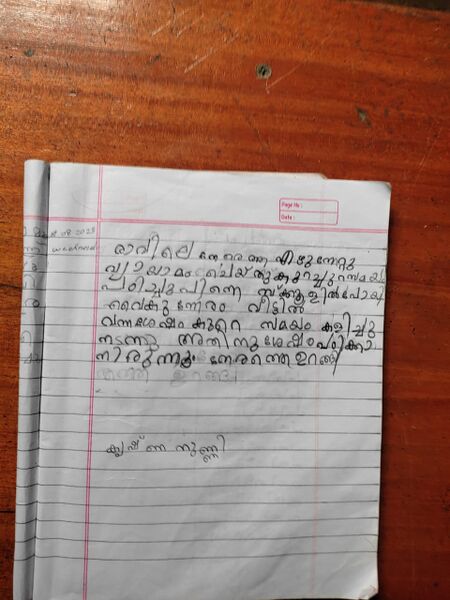 Page No :
Date :
രാവിലെ നേരത്തെ എഴുന്നേറ്റു
വ്യായാമം ചെയ്തു കുറച്ചു സമയം
പഠിച്ചു പിന്നെ സ്ക്കൂളിൽ പോയി
വൈകുന്നേരം വീട്ടിൽ
വന്നശേഷം കുറെ സമയം കളിച്ചു
നടന്നു അതിനു ശേഷം പഠിക്കാ
നിരുന്നു നേരത്തെ ഉറങ്ങി
കൃഷ്ണനുണ്ണി